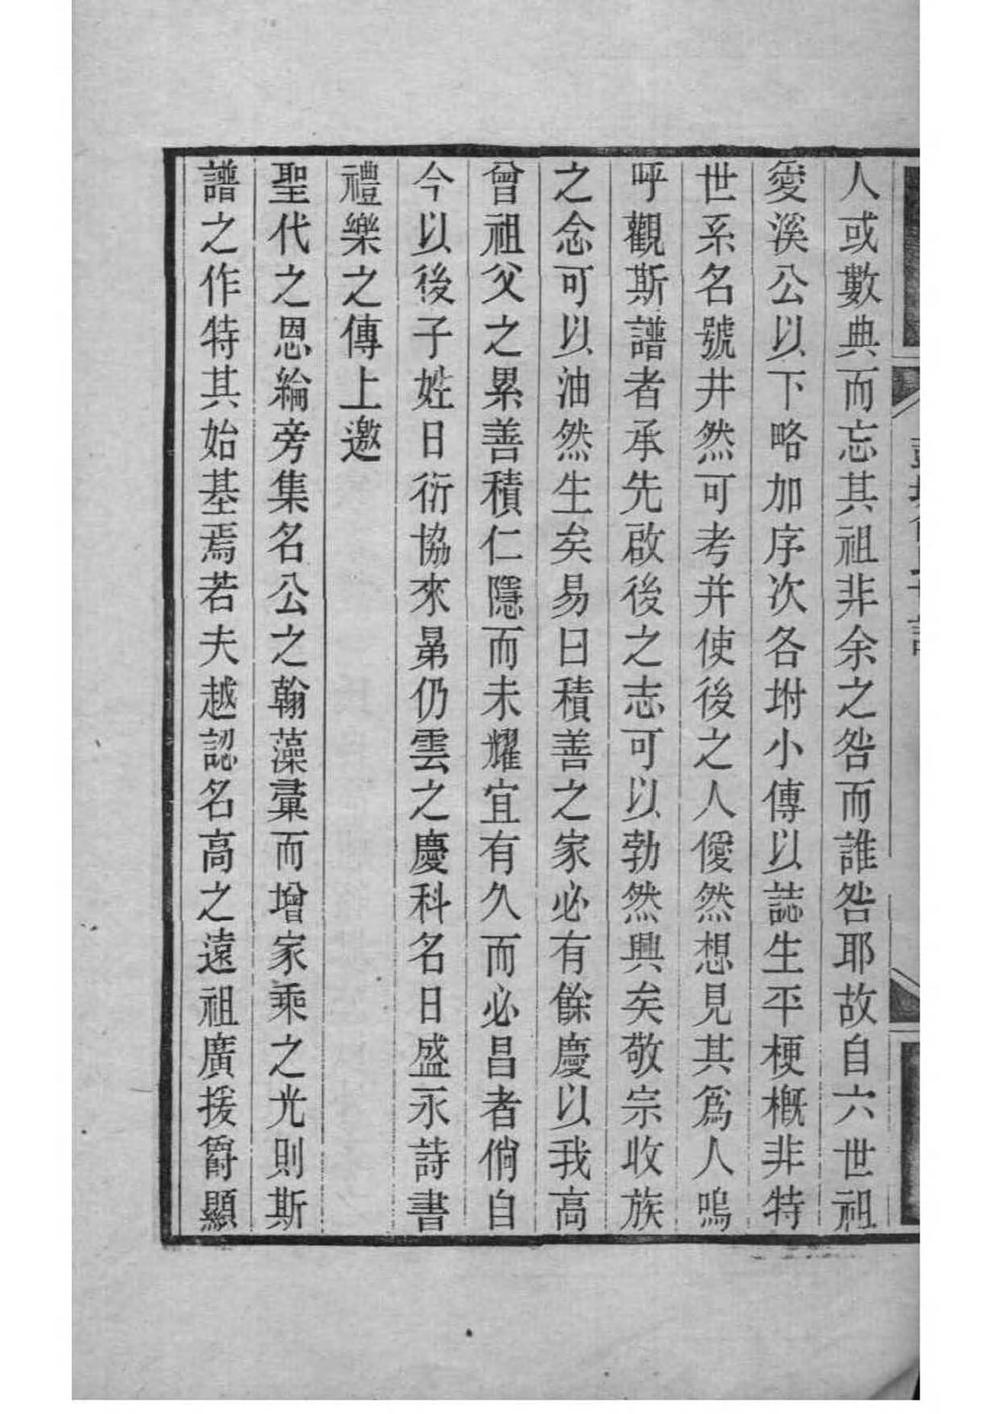 人或數典而忘其祖非余之咎而誰咎耶故自六世祖
愛溪公以下略加序次各坿小傳以誌生平梗槪非特
世系名號井然可考并使後之人僾然想見其爲人嗚
呼觀斯譜者承先啟後之志可以勃然興矣敬宗收族
之念可以油然生矣易曰積善之家必有餘慶以我高
曾祖父之累善積仁隱而未耀宜有久而必昌者倘自
今以後子姓日衍協來晜仍雲之慶科名日盛永詩書
禮樂之傳上邀
聖代之恩綸旁集名公之翰藻彚而增家乘之光則斯
譜之作特其始基焉若夫越認名高之遠祖廣援爵顯